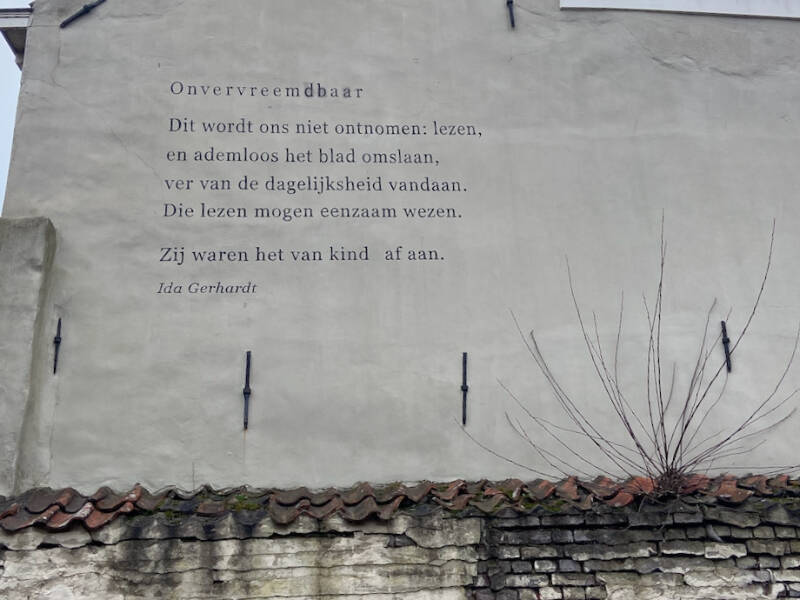 Onvervreemdbaar
Dit wordt ons niet ontnomen: lezen,
en ademloos het blad omslaan,
ver van de dagelijksheid vandaan.
Die lezen mogen eenzaam wezen.
Zij waren het van kind af aan.
Ida Gerhardt